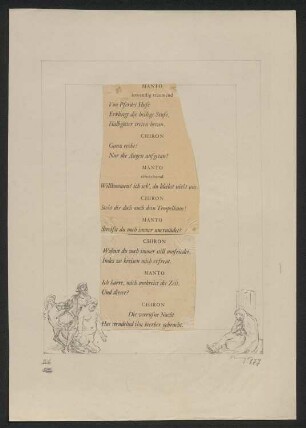 MANTO
inwendig träumend
Von Pferdes Hufe
Erklingt die heilige Stufe,
Halbgötter treten heran.
CHIRON
Ganz recht!
Nur die Augen aufgetan!
MANTO
erwachend
Willkommen! ich seh', du bleibst nicht aus.
CHIRON
Steht dir doch auch dein Tempelhaus!
MANTO
Streifst du noch immer unermüdet?
CHIRON
Wohnst du noch immer still umfriedet,
Indes zu kreisen mich erfreut.
MANTO
Ich harre, mich umkreist die Zeit.
Und dieser?
CHIRON
Die verrufne Nacht
Hat strudelnd ihn hierher gebracht.